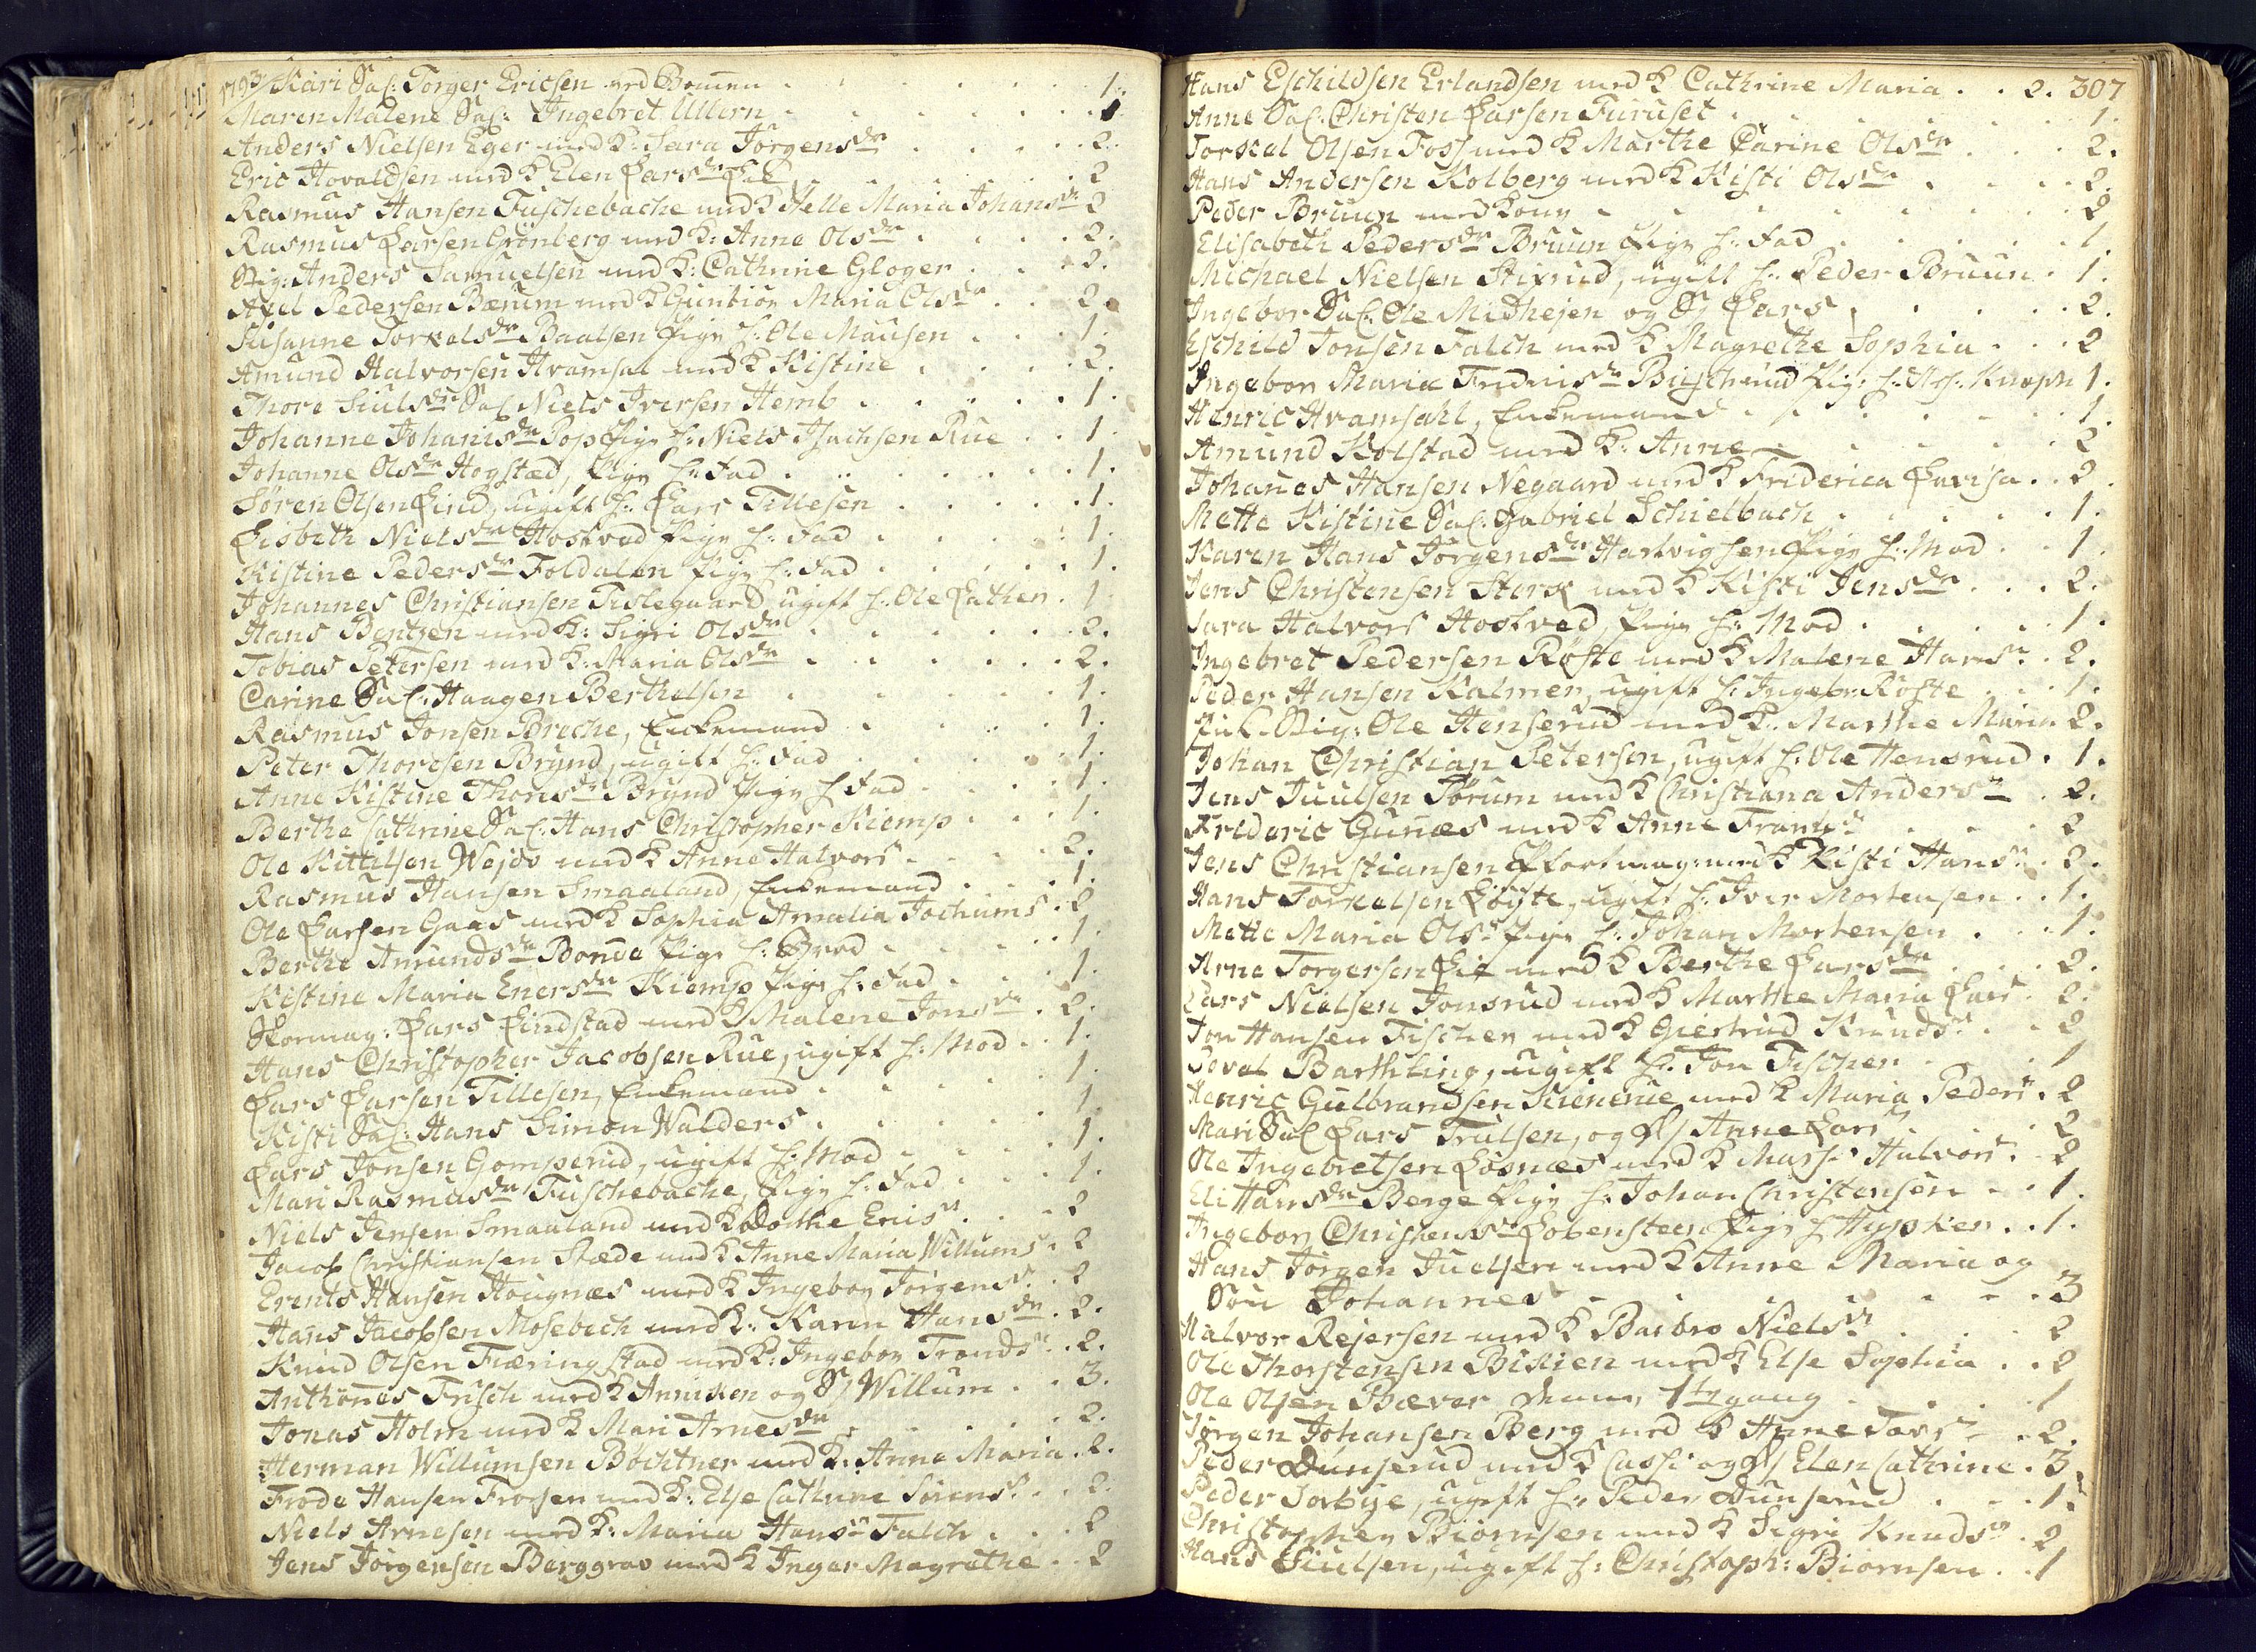 1793/ Kari Sal: Torger Ericsen ved Bommen 1.
Maren Malene Sal: Ingebret Ullern 1
Anders Nielsen Eger med K: Sara Jørgensdr 2.
Eric Hovaldsen med K Elen Larsdr 2
Rasmus Hansen Fuschebache med K Helle Maria Johansdr 2
Rasmus Larsen Grønberg med K: Anne Olsdr 2.
Stig: Anders Samuelsen med K: Cathrine Gloger 2.
Axel Pedersen Bærum med K Gunbiør Maria Olsdr 2.
Susanne Torkelsdr Baalsen Pige h: Ole Mausen 1.
Amund Halvorsen Hvamsal med K Kistine 2.
Thore Siulsdr Sal Niels Iversen Hemb 1.
Johanne Johanisdr Pop Pige h: Niels Isachsen Rue 1.
Johanne Olsdr Hogstæd, Pige h: Fad 1.
Søren Olsen Lind, ugift h: Lars Tillesen 1.
Lisbeth Nielsdr Hostved Pige h: Fad 1.
Kistine Pedersdr Foldalen Pige h: Fad 1.
Johannes Christiansen Tislegaard ugift h: Ole Lathen 1
Hans Bentzen med K: Sigri Olsdr 2.
Tobias Petersen med K: Maria Olsdr 2.
Carine Sal: Haagen Berthelsen 1.
Rasmus Jonsen Breche, Enkemand 1.
Peter Thoresen Brynd, ugift h: Fad 1.
Anne Kistine Thorisdr Brynd Pige h Fad 1.
Berthe Cathrine Sal: Hans Christopher Kiemp 1.
Ole Kittilsen Wejdo med K Anne Halvors 2.
Rasmus Hansen Smaaland, Enkemand 1.
Ole Larsen Gaas med K Sophia Amalia Jochums 2
Berthe Amundsdr Bonde Pige h: Brod 1.
Kistine Maria Enersdr Kiemp Pige h: Fad 1.
Skormag: Lars Lindstad med K Malene Jonsdr 2.
Hans Christopher Jacobsen Rue, ugift h: Mod 1.
Lars Larsen Tillesen, Enkemand 1.
Kisti Sal: Hans Simon Walders 1
Lars Jonsen Gomperud, ugift h: Mod 1.
Mari Rasmusdr Fuschebache, Pige h: Fad 1.
Niels Jensen Smaaland med K Dorthe Erics 2
Jacob Christiansen Stæde med K Anne Maria Willums 2
Erents Hansen Hougnæs med K Ingebor Jørgens 2
Hans Jacobsen Mosebech med K: Karen Hansdr 2.
Knud Olsen Fiæringstad med K: Ingebor Tronds 2.
Anthones Frisch med K Anniken og S/ Willum 3.
Jonas Holm med K Mari Arnesdr 2.
Herman Willumsen Bøchtner med K: Anne Maria 2.
Frode Hansen Frosen med K: Else Cathrine Sørens 2.
Niels Arnesen med K: Maria Hansdr Falch 2
Jens Jørgensen Berggrav med K Inger Magrethe 2
Hans Eschildsen Erlandsen med K Cathrine Maria 2. 307
Anne Sal: Christen Larsen Furuset 1.
Torkal Olsen Foss med K Marthe Carine Olsdr 2.
Hans Andersen Kolberg med K Kisti Olsdr 2.
Peder Bruun med Kone 2
Elisabeth Pedersdr Bruun Pige h: Fad 1.
Michael Nielsen Stixrud, ugift h: Peder Bruun 1.
Ingebor Sal: Ole Midhejen og S/ Lars 2.
Eschild Jonsen Falch med K Magrethe Sophia 2
Ingebor Maria Fredricsdr Pige h: 1.
Henric Hvamsahl, Enkemand 1.
Amund Kolstad med K: Anne 2
Johanes Hansen Negaard med K Friderica Lovisa 2.
Mette Kistine Sal: Gabriel Schielbach 1.
Karen Hans Jørgensdr Hartvigsen Pige h: Mod 1.
Jens Christensen Stork med K Kisti Jensdr 2.
Sara Halvors Hostved, Pige h: Mod 1.
Ingebret Pedersen Røste med K Malene Hans 2.
Peder Hansen Kalmen, ugift h: Ingebr: Røste 1.
Stig: Ole Henserud med K: Marthe Maria 2.
Johan Christian Petersen, ugift h: Ole Hensrud 1.
Jens Juulsen Sørum med K Christiana Anders 2.
Frideric Gunæs med K Anne Frants 2
Jens Christiansen Skormag: med K Kisti Hans 2.
Hans Torkelsen Løyte, ugift h: Iver Mortensen 1.
Mette Maria Ols Pige h: Johan Mortensen 1.
Arne Torgersen Lie med K Berthe Larsdr 2.
Lars Nielsen Jonsrud med K Marthe Maria Lars 2.
Jon Hansen Fischer med K Giertrud Knuds 2
Poval Barthling, ugift h: Jon Fischer 1
Henric Gulbrandsen med K Maria Peders 2
Mari Sal Lars Trulsen, og D/ Anne Lars 2
Ole Ingebretsen Løsnæs med K Masse Halvors 2
Eli Hansdr Berge Pige h: Johan Christensen 1.
Ingebor Christensdr Lobensteen Pige h Hypken 1.
Hans Jørgen Juelsen med K Anne Maria og
Søn Johannes 3
Halvor Rejersen med K Barbro Niels 2
Ole Thorstensen Bikien med K Else Sophia 2
Ole Olsen Bæver denne 1te gang 1
Jørgen Johansen Berg med K Anne Tors 2.
Peder Dunserud med K Casse og D/ Elen Cathrine 3.
Peder Sorbye, ugift h: Peder Dunserud 1.
Christopher Biørnsen med K Sigri Knuds 2
Hans Siulsen, ugift h: Christoph: Biørnsen 1